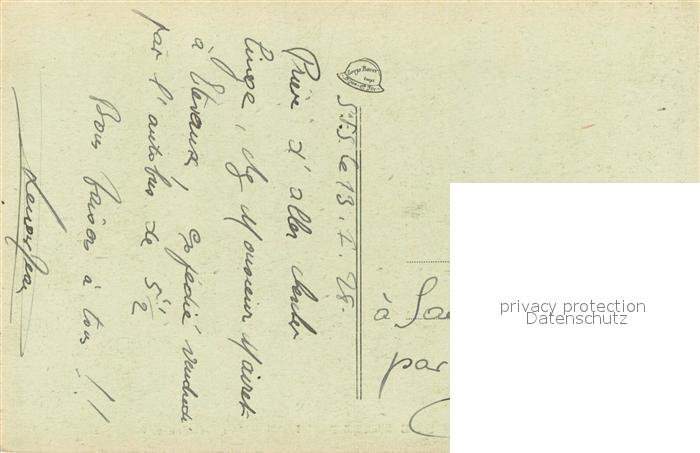 S.F.S. le 13. 1. 28.
Prière d'aller chercher
linge, chez Monsieur Mairet
à Etevaux, expédié vendredi
par l'autobus de 5h 1/2
Bons baisers à tous !!
à Sa
par
privacy protection
Datenschutz